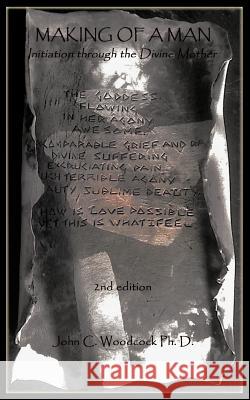 MAKING OF A MAN
Initiation through the Divine Mother
THE GODDESS
FLOWING
IN HER AGONY
AWESOME
COMPARABLE GRIEF AND
DIVINE SUFFERING
EXCRUCIATING PAIN
UCH TERRIBLE AGONY
AUTY, SUBLIME BEAUTY
HOW IS LOVE POSSIBLE
YET THIS IS WHAT I FEEL
2nd edition
John C. Woodcock Ph.D.